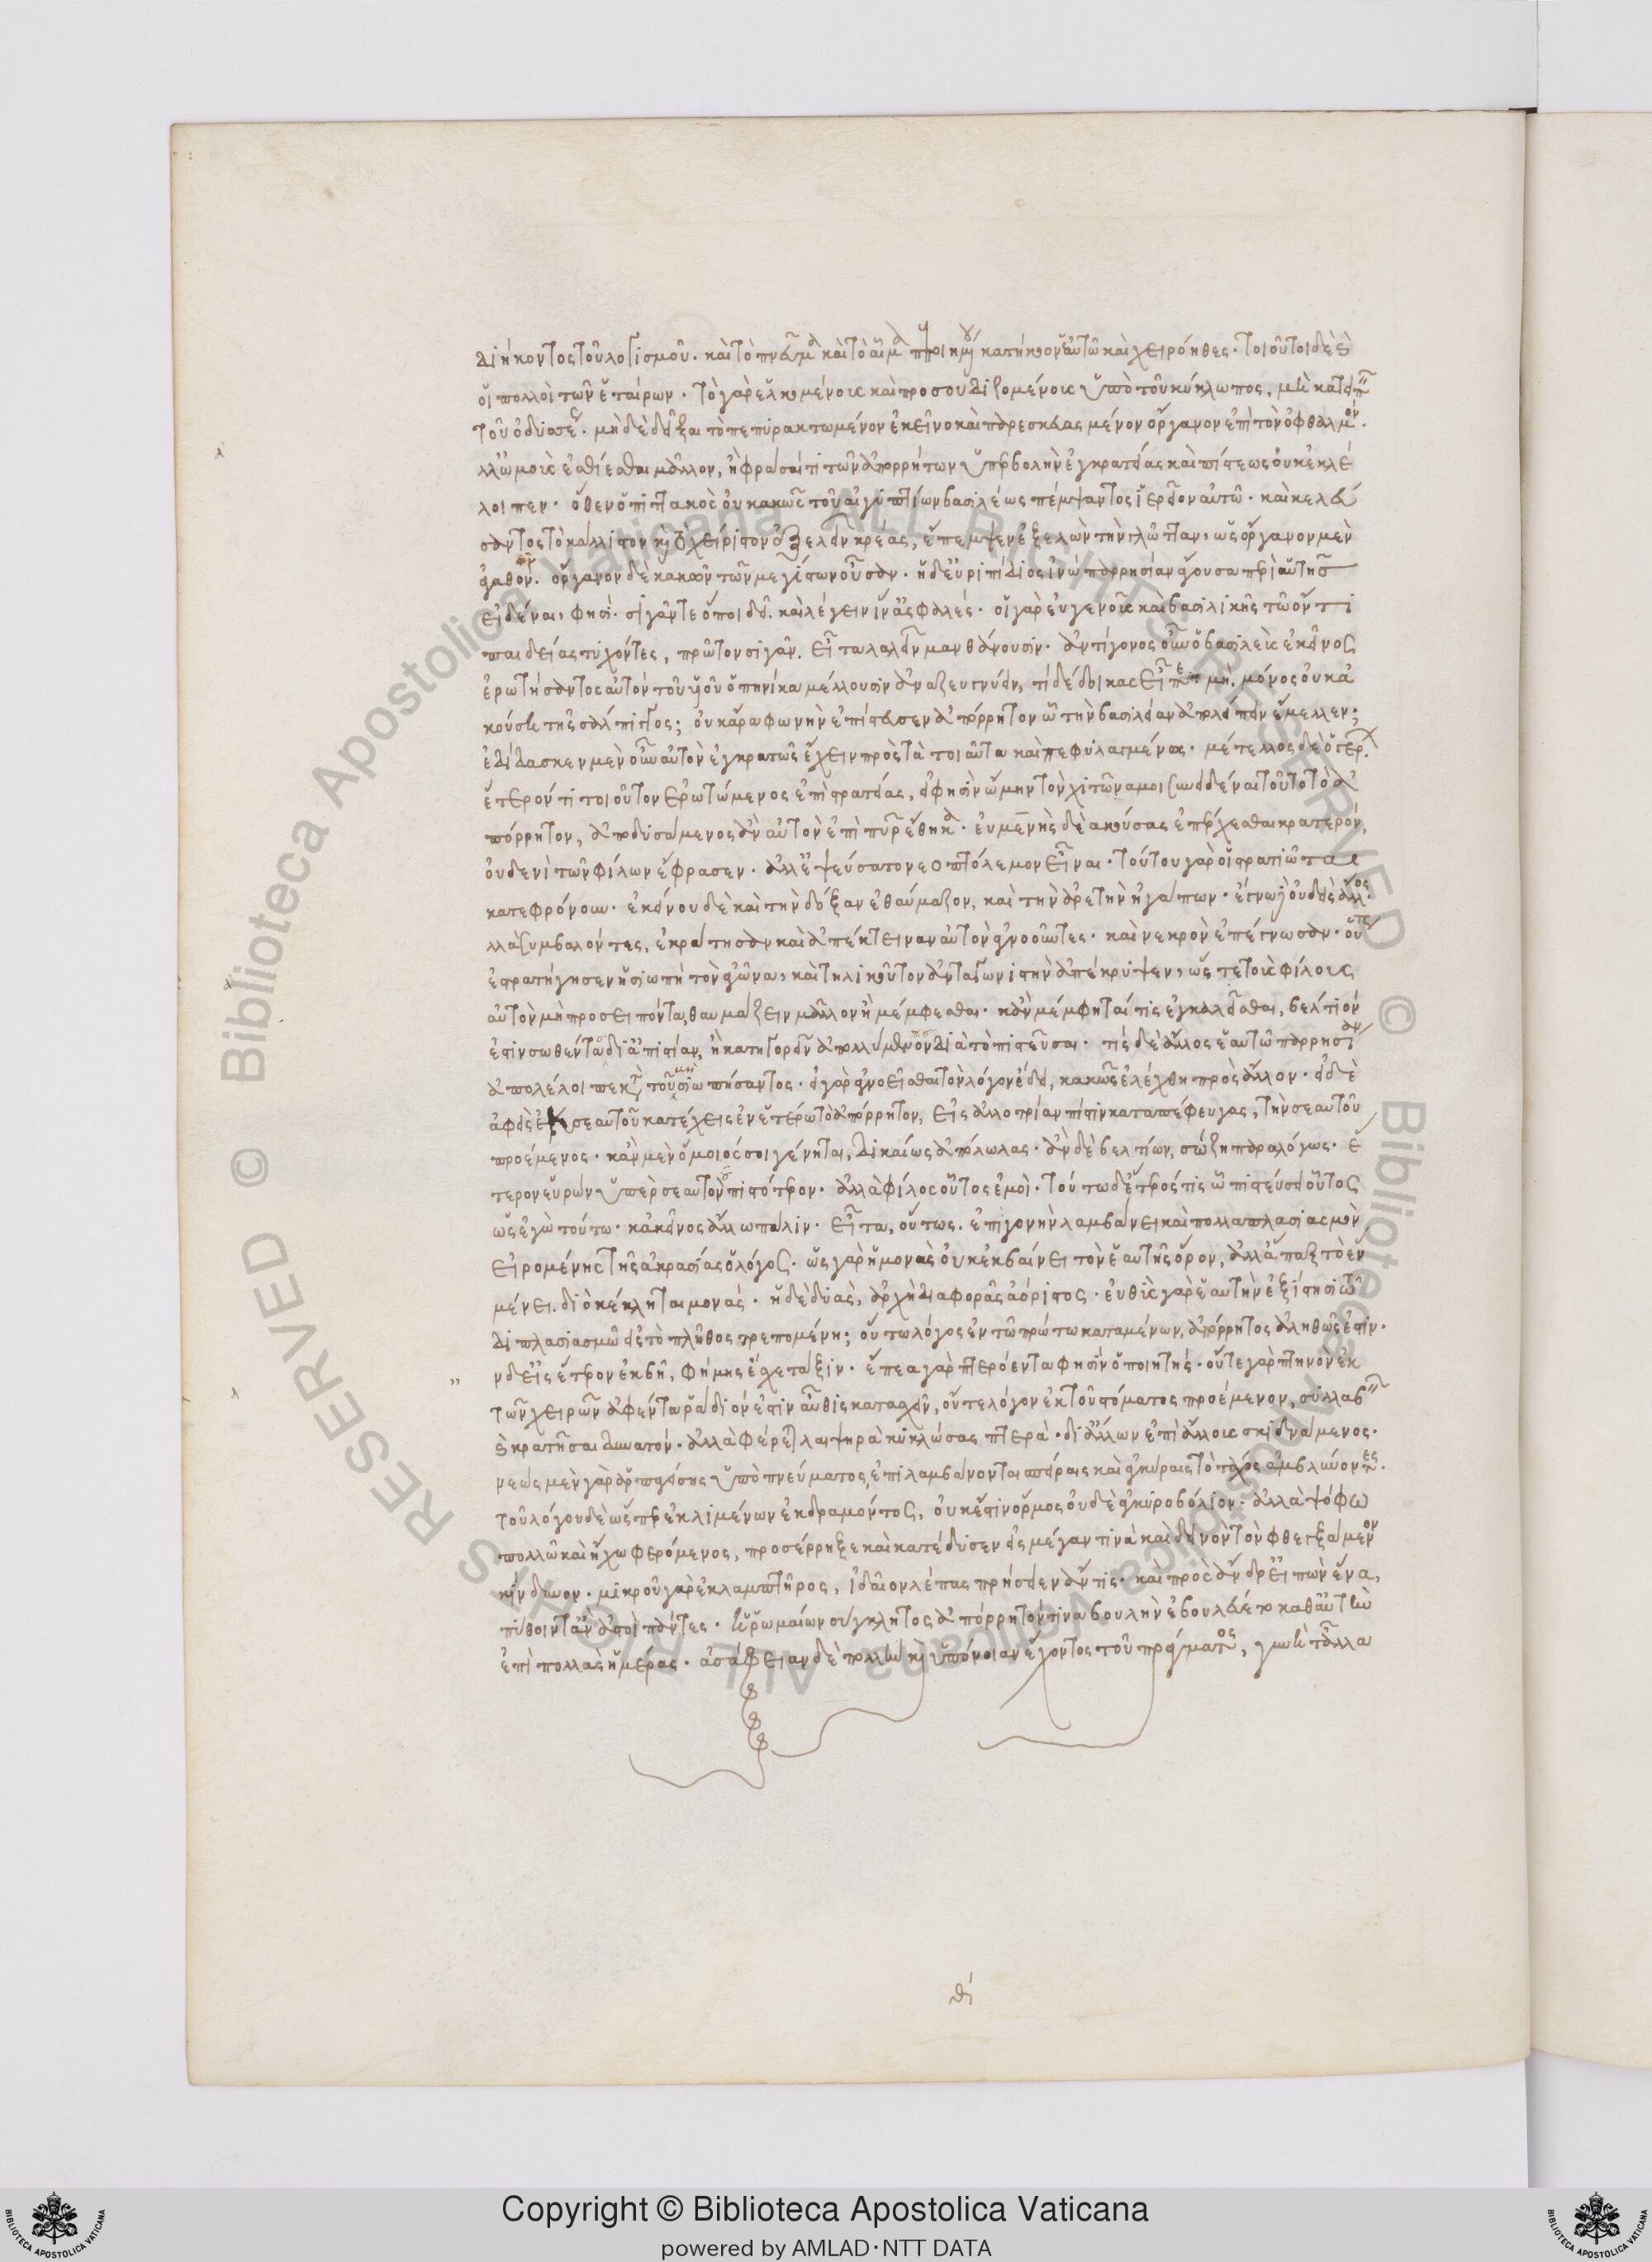 διήκοντος τοῦ λογισμοῦ. καὶ τὸ πνεῦμα καὶ τὸ αἷμα πεποιημένου κατήκοον ἑαυτῷ καὶ χειρόηθες. τοιοῦτοι δὲ καὶ
οἱ πολλοὶ τῶν ἑταίρων. τὸ γὰρ ἑλκομένοις καὶ προσουδιζομένοις ὑπὸ τοῦ κύκλωπος, μὴ κατειπεῖν
τοῦ ὀδυσσέως. μὴ δὲ δεῖξαι τὸ πεπυρακτωμένον ἐκεῖνο καὶ παρεσκευασμένον ὄργανον ἐπὶ τὸν ὀφθαλμόν.
ἀλλ' ὠμοὺς ἐσθίεσθαι μᾶλλον, ἢ φράσαί τι τῶν ἀπορρήτων ὑπερβολὴν ἐγκρατείας καὶ πίστεως οὐκ ἐκλέ
λοιπεν. ὅθεν ὁ πιττακὸς οὐ κακῶς τοῦ αἰγυπτίων βασιλέως πέμψαντος ἱερεῖον αὐτῷ. καὶ κελεύ
σαντος τὸ κάλλιστον καὶ τὸ χείριστον ἐξελεῖν κρέας, ἔπεμψεν ἐξελὼν τὴν γλῶτταν, ὡς ὄργανον μὲν
ἀγαθῶν. ὄργανον δὲ κακῶν τῶν μεγίστων οὖσαν. ἡ δ' εὐριπίδιος ἰνὼ παρρησίαν ἄγουσα περὶ αὑτῆς
εἰδέναι, φησὶ. σιγᾶν τε ὅποι δεῖ. καὶ λέγειν ἵν' ἀσφαλές. οἱ γὰρ εὐγενοῦς καὶ βασιλικῆς τῷ ὄντι
παιδείας τυχόντες, πρῶτον σιγᾶν. εἶτα λαλεῖν μανθάνουσιν. ἀντίγονος οὖν ὁ βασιλεὺς ἐκεῖνος
ἐρωτήσαντος αὐτόν τοῦ υἱοῦ ὁπηνίκα μέλλουσιν ἀναζευγνύειν, τί δέδοικας εἶπε μὴ. μόνος οὐκ ἀ
κούσῃ τῆς σάλπιγγος; οὐκ ἄρα φωνὴν ἐπίστευσεν ἀπόρρητον ᾧ τὴν βασιλείαν ἀπολείπειν ἔμελλεν;
ἐδίδασκεν μὲν οὖν αὐτὸν ἐγκρατῶς ἔχειν πρὸς τὰ τοιαῦτα καὶ πεφυλαγμένως. μέτελλος δὲ ὁ γέρων.
ἕτερόν τι τοιοῦτον ἐρωτώμενος ἐπὶ στρατείας, εἰ φησὶν ᾤμην τὸν χιτῶνά μοι συνειδέναι τοῦτο τὸ ἀ
πόρρητον, ἀποδυσάμενος ἂν αὐτὸν ἐπὶ πῦρ ἔθηκα. εὐμένης δὲ ἀκούσας ἐπέρχεσθαι κρατερόν,
οὐδενὶ τῶν φίλων ἔφρασεν. ἀλλ' ἐψεύσατο νεοπτόλεμον εἶναι. τούτου γὰρ οἱ στρατιῶται
κατεφρόνουν. ἐκείνου δὲ καὶ τὴν δόξαν ἐθαύμαζον, καὶ τὴν ἀρετὴν ἠγάπων. ἔγνω δ' οὐδεὶς ἄλλος.
ἀλλὰ συμβαλόντες, ἐκράτησαν καὶ ἀπέκτειναν αὐτὸν ἀγνοοῦντες. καὶ νεκρὸν ἐπέγνωσαν. οὕτως
ἐστρατήγησεν ἡ σιωπὴ τὸν ἀγῶνα, καὶ τηλικοῦτον ἀνταγωνιστὴν ἀπέκρυψεν, ὥστε τοὺς φίλους
αὐτὸν μὴ προσειπόντα, θαυμάζειν μᾶλλον ἢ μέμφεσθαι. κἂν μέμφηταί τις ἐγκαλεῖσθαι, βέλτιόν
ἐστιν σωθέντα δι' ἀπιστίαν, ἢ κατηγορεῖν ἀπολλύμενον διὰ τὸ πιστεῦσαι. τίς δὲ ἄλλος ἑαυτῷ παρρησίαν
ἀπολέλοιπε κατὰ τοῦ μὴ σιωπήσαντος. εἰ γὰρ ἀγνοεῖσθαι τὸν λόγον ἔδει, κακῶς ἐλέχθη πρὸς ἄλλον. εἰ δὲ
ἀφεὶς ἐκ σεαυτοῦ κατέχεις ἐν ἑτέρῳ τὸ ἀπόρρητον, εἰς ἀλλοτρίαν πίστιν καταπέφευγας, τὴν σεαυτοῦ
προέμενος. κἂν μὲν ὅμοιός σοι γένηται, δικαίως ἀπόλωλας. ἂν δὲ βελτίων, σώζῃ παραλόγως. ἕ
τερον εὑρὼν ὑπὲρ σεαυτὸν πιστότερον. ἀλλὰ φίλος οὗτος ἐμοὶ. τούτῳ δ' ἕτερός τις ᾧ πιστεύσει οὗτος
ὡς ἐγὼ τούτῳ. κἀκεῖνος ἄλλῳ πάλιν. εἶτα, οὕτως. ἐπιγονὴν λαμβάνει καὶ πολλαπλασιασμὸν
εἰρομένης τῆς ἀκρασίας ὁ λόγος. ὡς γὰρ ἡ μονὰς οὐκ ἐκβαίνει τὸν ἑαυτῆς ὅρον, ἀλλ' ἅπαξ τὸ ἓν
μένει. διὸ κέκληται μονάς. ἡ δὲ δυὰς, ἀρχὴ διαφορᾶς ἀόριστος. εὐθὺς γὰρ ἑαυτὴν ἐξίστησι τῷ
διπλασιασμῷ εἰς τὸ πλῆθος τρεπομένη; οὕτω λόγος ἐν τῷ πρώτῳ καταμένων, ἀπόρρητος ἀληθῶς ἐστιν.
ἂν δ' εἰς ἕτερον ἐκβῇ, φήμης ἔσχε τάξιν. ἔπεα γὰρ πτερόεντα φησὶν ὁ ποιητής. οὔτε γὰρ πτηνὸν ἐκ
τῶν χειρῶν ἀφέντα ῥάδιόν ἐστιν αὖθις κατασχεῖν, οὔτε λόγον ἐκ τοῦ στόματος προέμενον, συλλαβεῖν
καὶ κρατῆσαι δυνατόν. ἀλλὰ φέρεται λαιψηρὰ κυκλώσας πτερὰ. δι' ἄλλων ἐπ' ἄλλοις σκιδνάμενος.
νεὼς μὲν γὰρ ἁρπαγείσης ὑπὸ πνεύματος, ἐπιλαμβάνονται σπείραις καὶ ἀγκύραις τὸ τάχος ἀμβλύνοντες.
τοῦ λόγου δὲ ὥσπερ ἐκ λιμένων ἐκδραμόντος, οὐκ ἔστιν ὅρμος οὐδὲ ἀγκυροβόλιον. ἀλλὰ ψόφῳ
πολλῷ καὶ ἤχῳ φερόμενος, προσέρρηξε καὶ κατέδυσεν εἰς μέγαν τινὰ καὶ δεινὸν τὸν φθεγξάμενον
κίνδυνον. μικροῦ γὰρ ἐκ λαμπτῆρος, ἰδαῖον λέπας πρήσειεν ἄν τις. καὶ πρὸς ἄνδρ' εἰπὼν ἕνα,
πύθοιντ' ἂν ἀστοὶ πάντες. ἡ ῥωμαίων σύγκλητος ἀπόρρητόν τινα βουλὴν ἐβουλεύετο καθ' αὑτὴν
ἐπὶ πολλὰς ἡμέρας. ἀσάφειαν δὲ πολλὴν καὶ ὑπόνοιαν ἔχοντος τοῦ πράγματος, γυνὴ τἄλλα